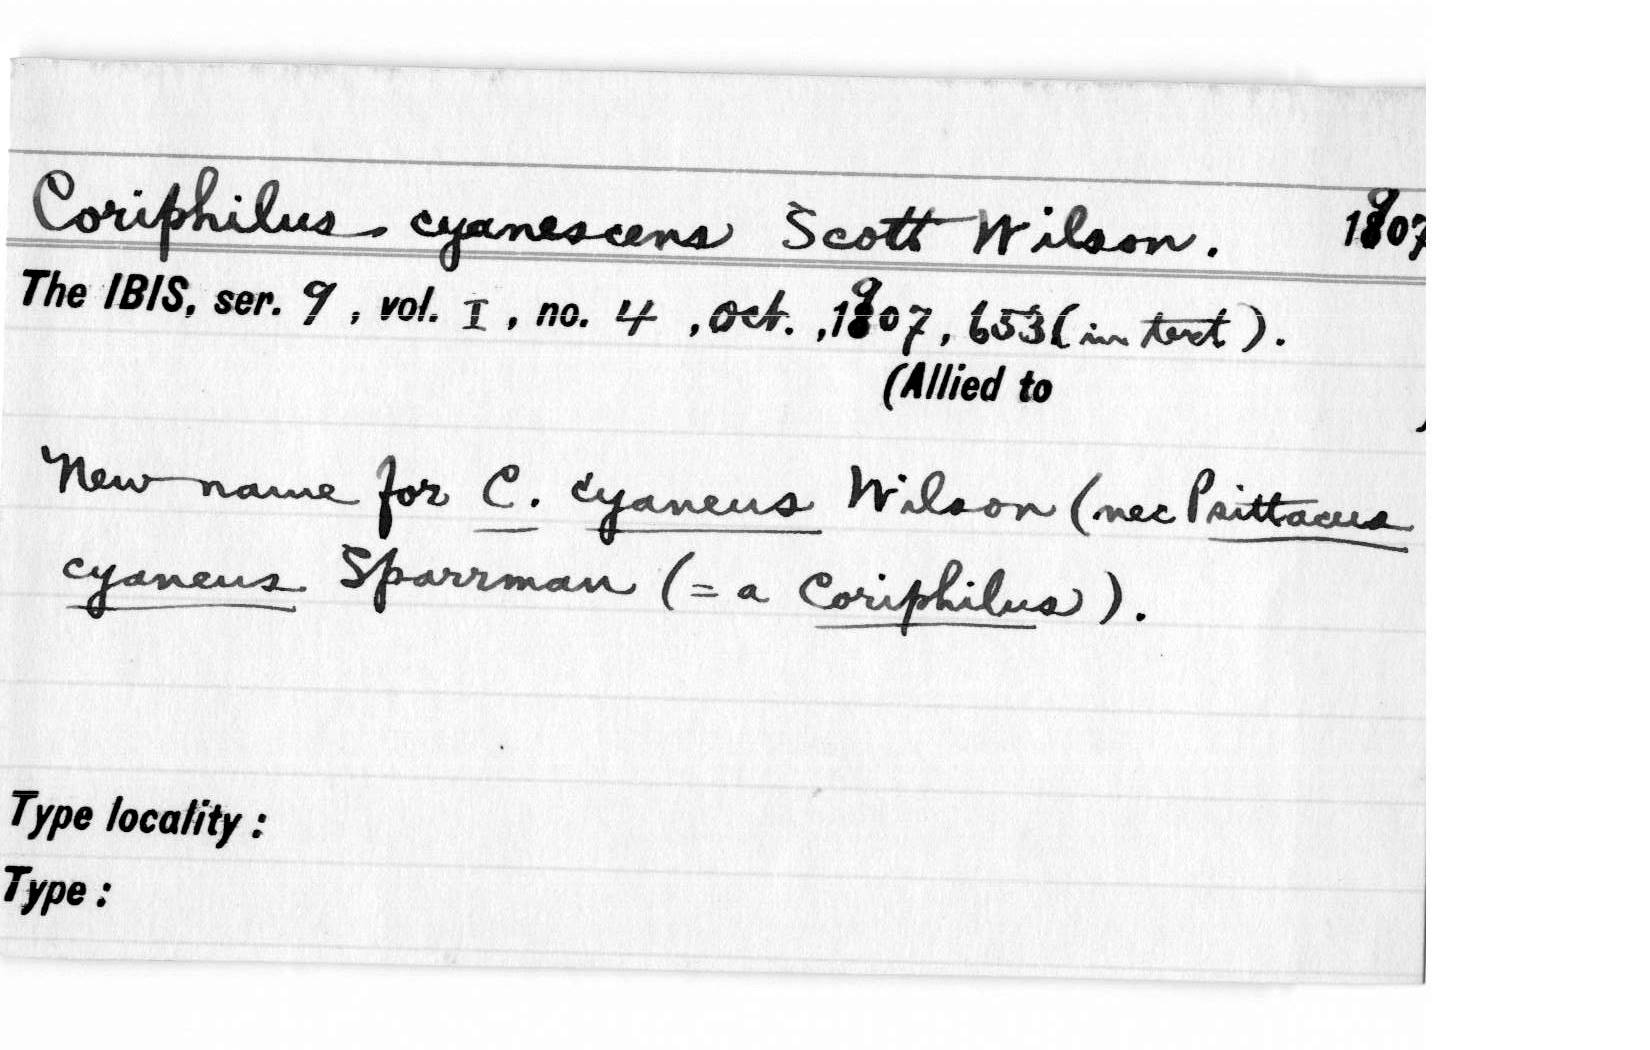 Coriphilus cyanescens Scott Wilson. 1907
The IBIS, ser. 9, vol. I, no. 4, Oct., 1907, 653 (in text).
(Allied to )
New name for C. cyaneus Wilson (nec Psittacus
cyaneus Sparrman (= a Coriphilus).
Type locality:
Type: